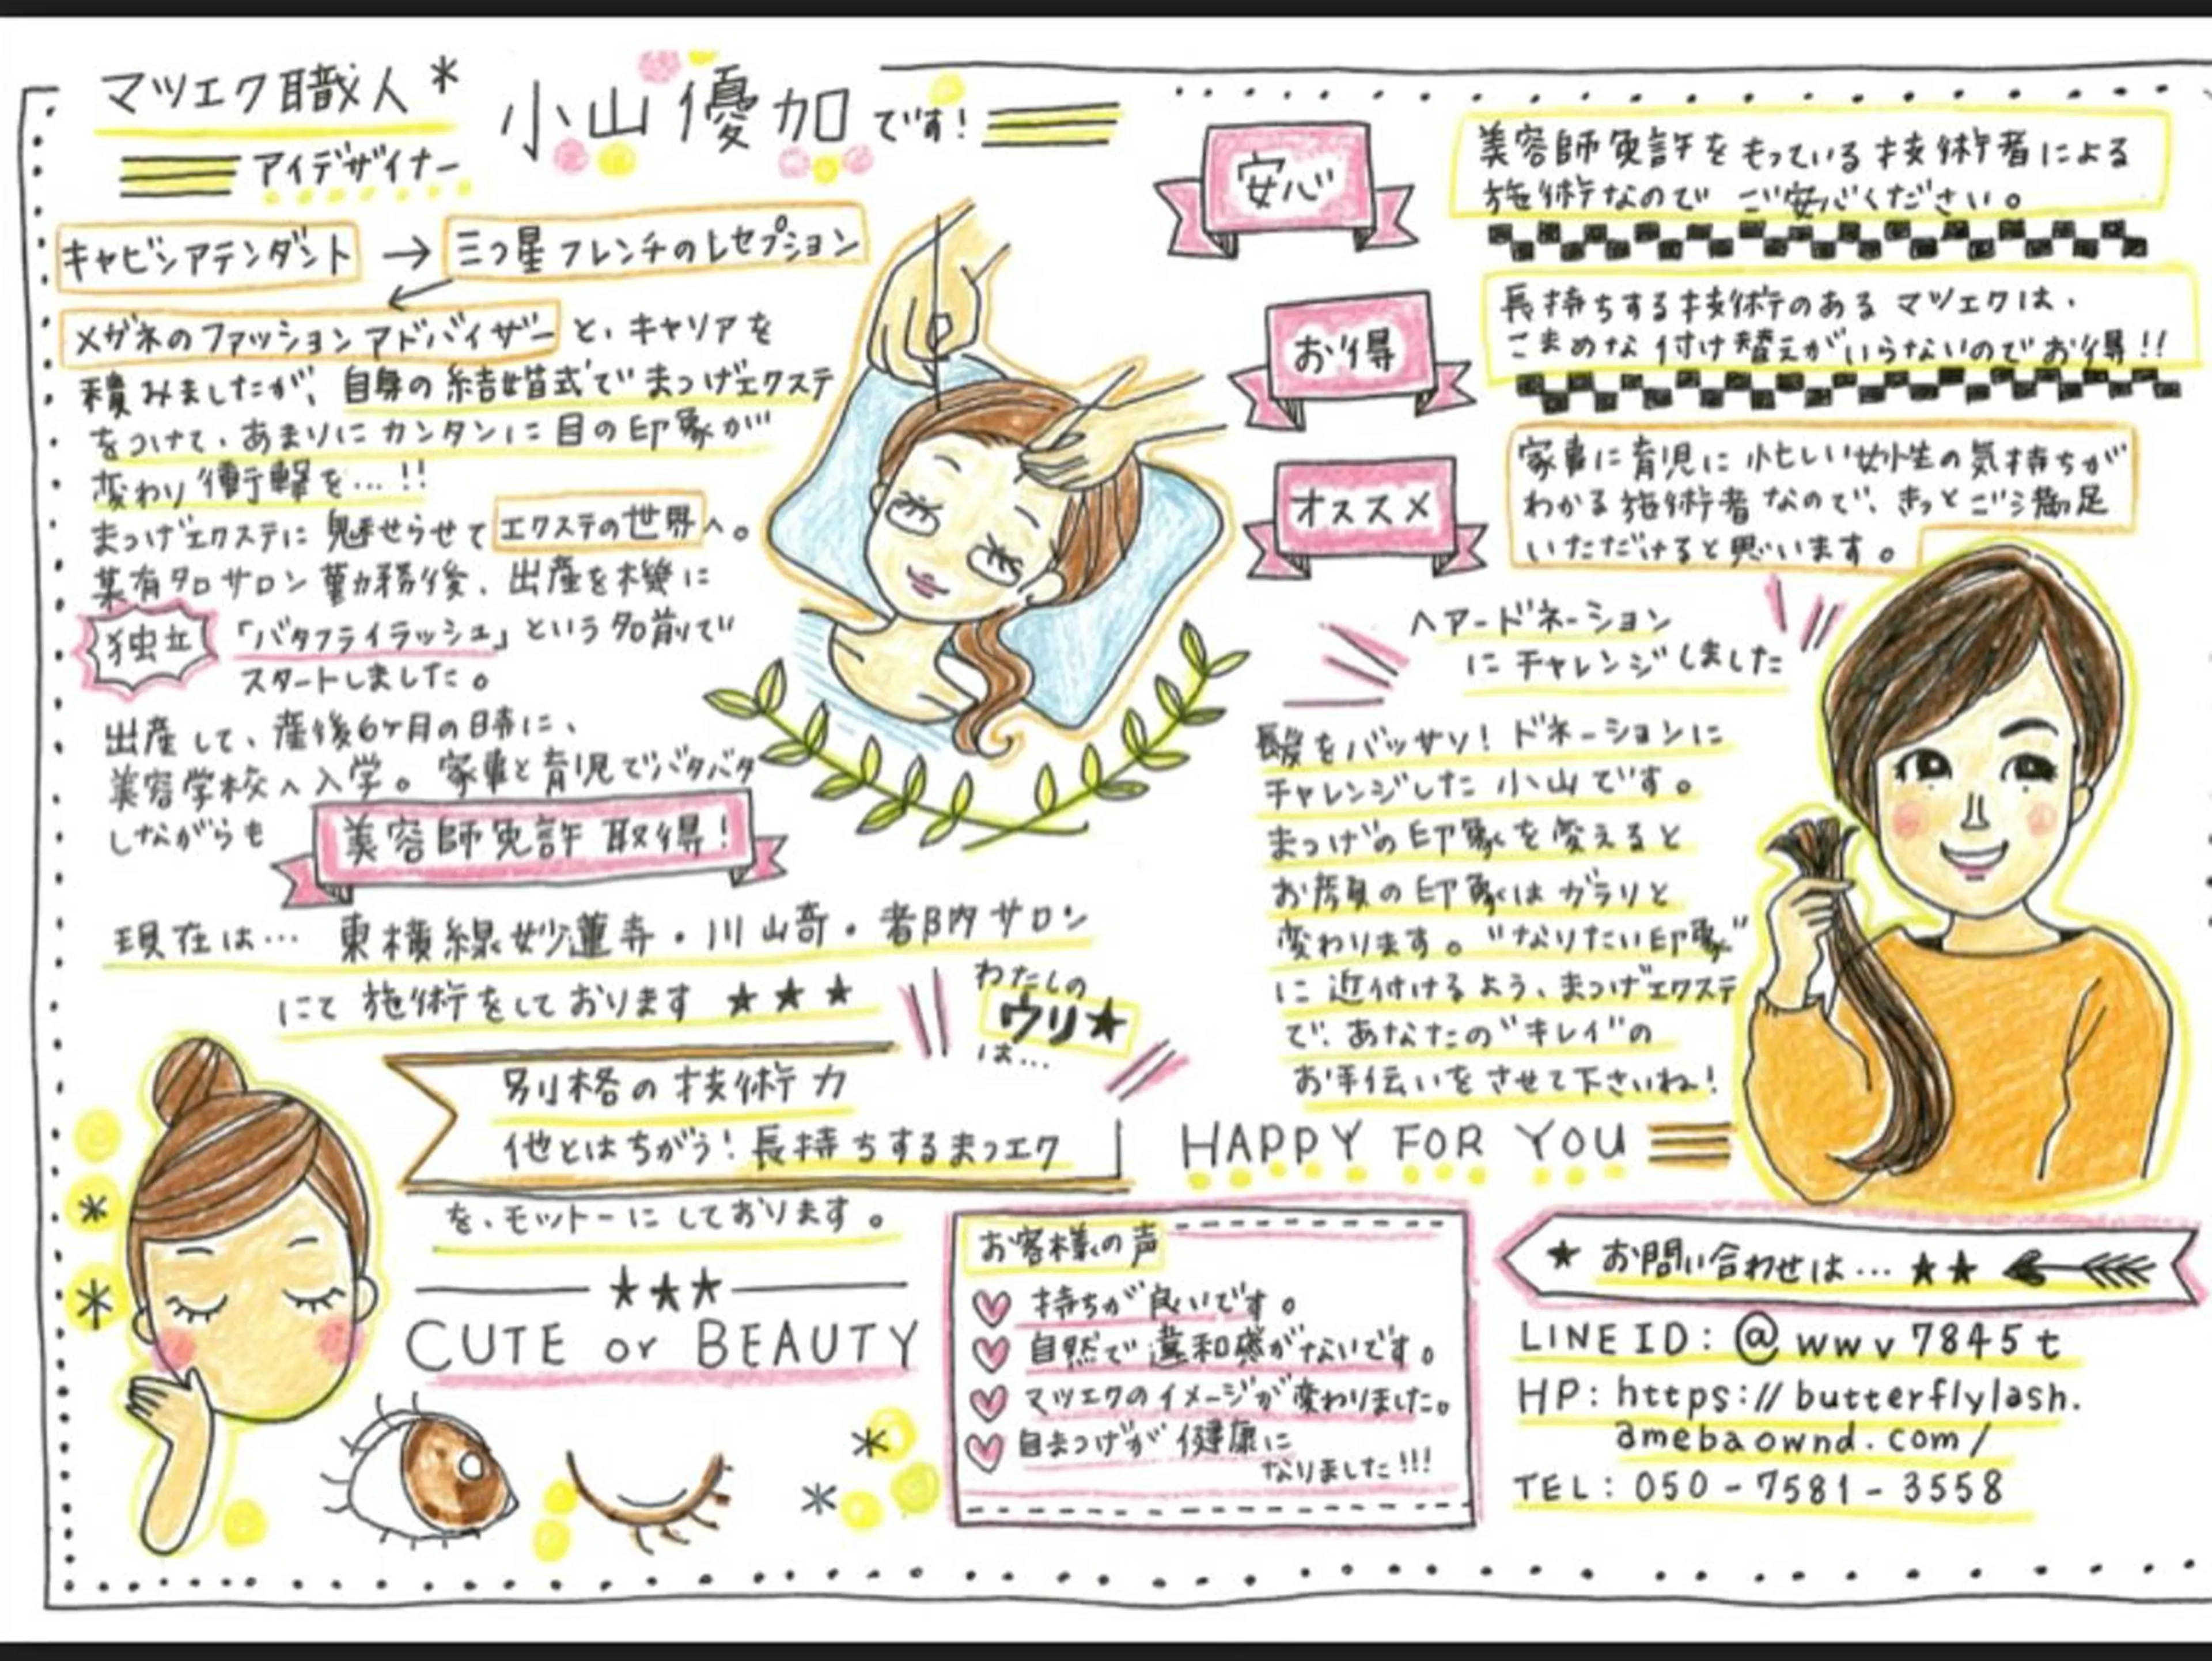 マツエク職人*
アイデザイナー
小山優加です!
キャビンアテンダント → 三つ星フレンチのレセプション
メガネのファッションアドバイザーと、キャリアを
積みましたが、自身の結婚式でまつげエクステ
をつけて、あまりにカンタンに目の印象が
変わり衝撃を…!!
まつげエクステに魅せらせてエクステの世界へ。
某有名サロン勤務後、出産を機に
独立「バタフライラッシュ」という名前で
スタートしました。
出産して、産後6ヶ月の時に、
美容学校へ入学。家事と育児でバタバタ
しながらも 美容師免許取得!
現在は… 東横線妙蓮寺・川崎・都内サロン
にて施術をしております ★★★
わたしの
ウリ★
は…
別格の技術力
他とはちがう!長持ちするまつエク
を、モットーにしております。
★★★
CUTE or BEAUTY
安心
美容師免許をもっている技術者による
施術なので ご安心ください。
お得
長持ちする技術のあるマツエクは、
こまめな付け替えがいらないのでお得!!
オススメ
家事に育児に忙しい女性の気持ちが
わかる施術者なので、きっとご満足
いただけると思います。
ヘアードネーション
にチャレンジしました
長髪をバッサリ!ドネーションに
チャレンジした小山です。
まつげの印象を変えると
お顔の印象はガラリと
変わります。"なりたい印象"
に近付けるよう、まつげエクステ
で、あなたの"キレイ"の
お手伝いをさせて下さいね!
HAPPY FOR YOU
お客様の声
持ちが良いです。
自然で違和感がないです。
マツエクのイメージが変わりました。
自まつげが健康に
なりました!!!
★ お問い合わせは…★★
LINE ID: @wwv7845t
HP: https://butterflylash.
amebaownd.com/
TEL: 050-7581-3558